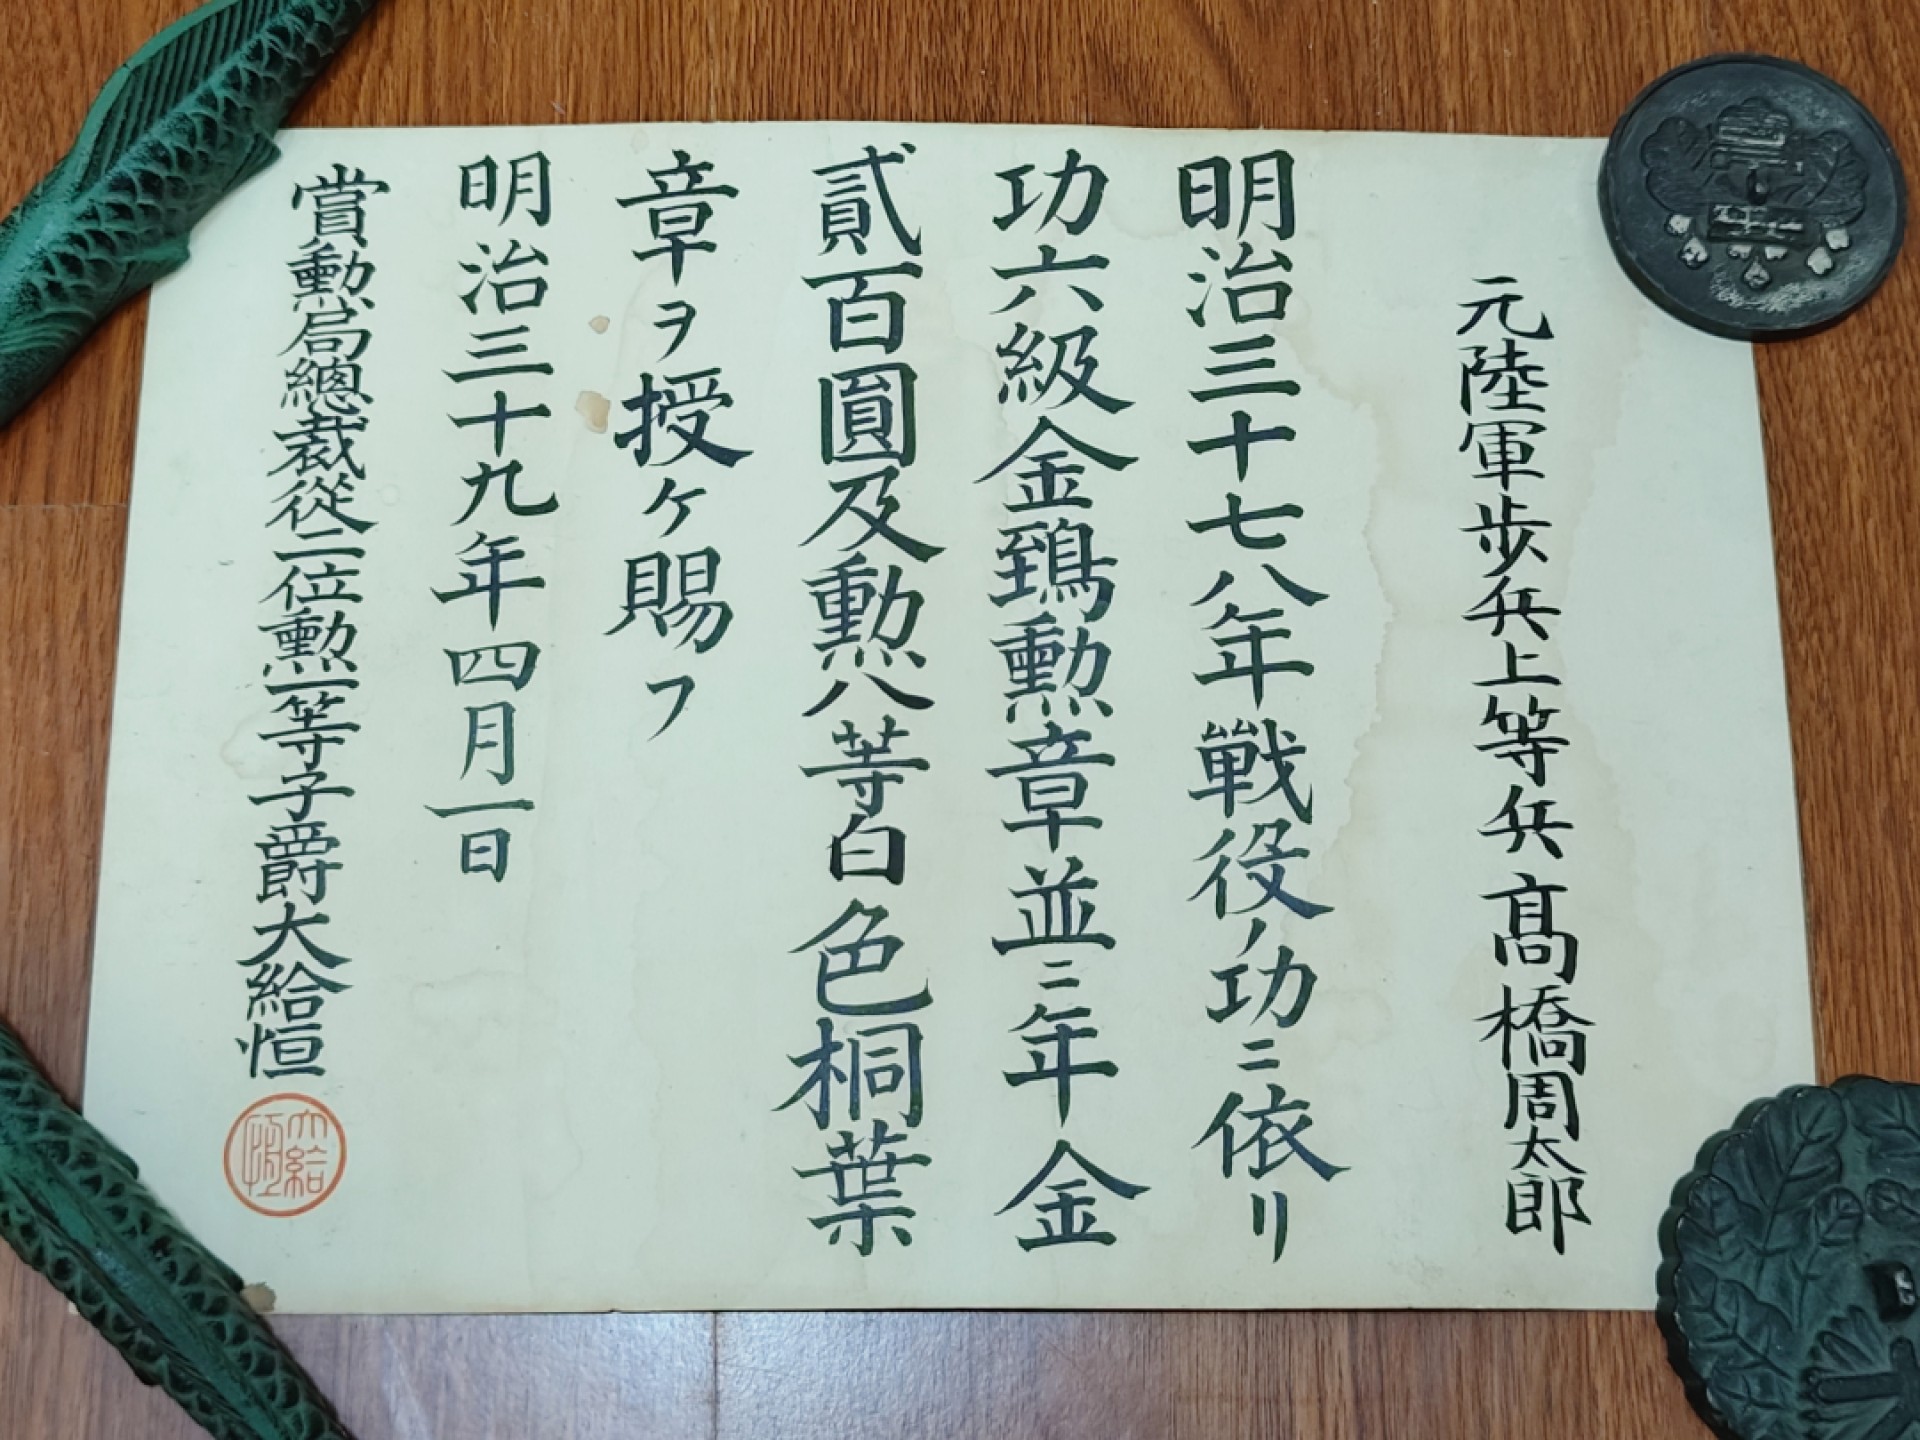 元陸軍歩兵上等兵髙橋周太郎
明治三十七八年戰役ノ功ニ依リ
功六級金鵄勲章並ニ年金
貳百圓及勲八等白色桐葉
章ヲ授ケ賜フ
明治三十九年四月一日
賞勲局總裁從二位勲一等子爵大給恒
大給恒